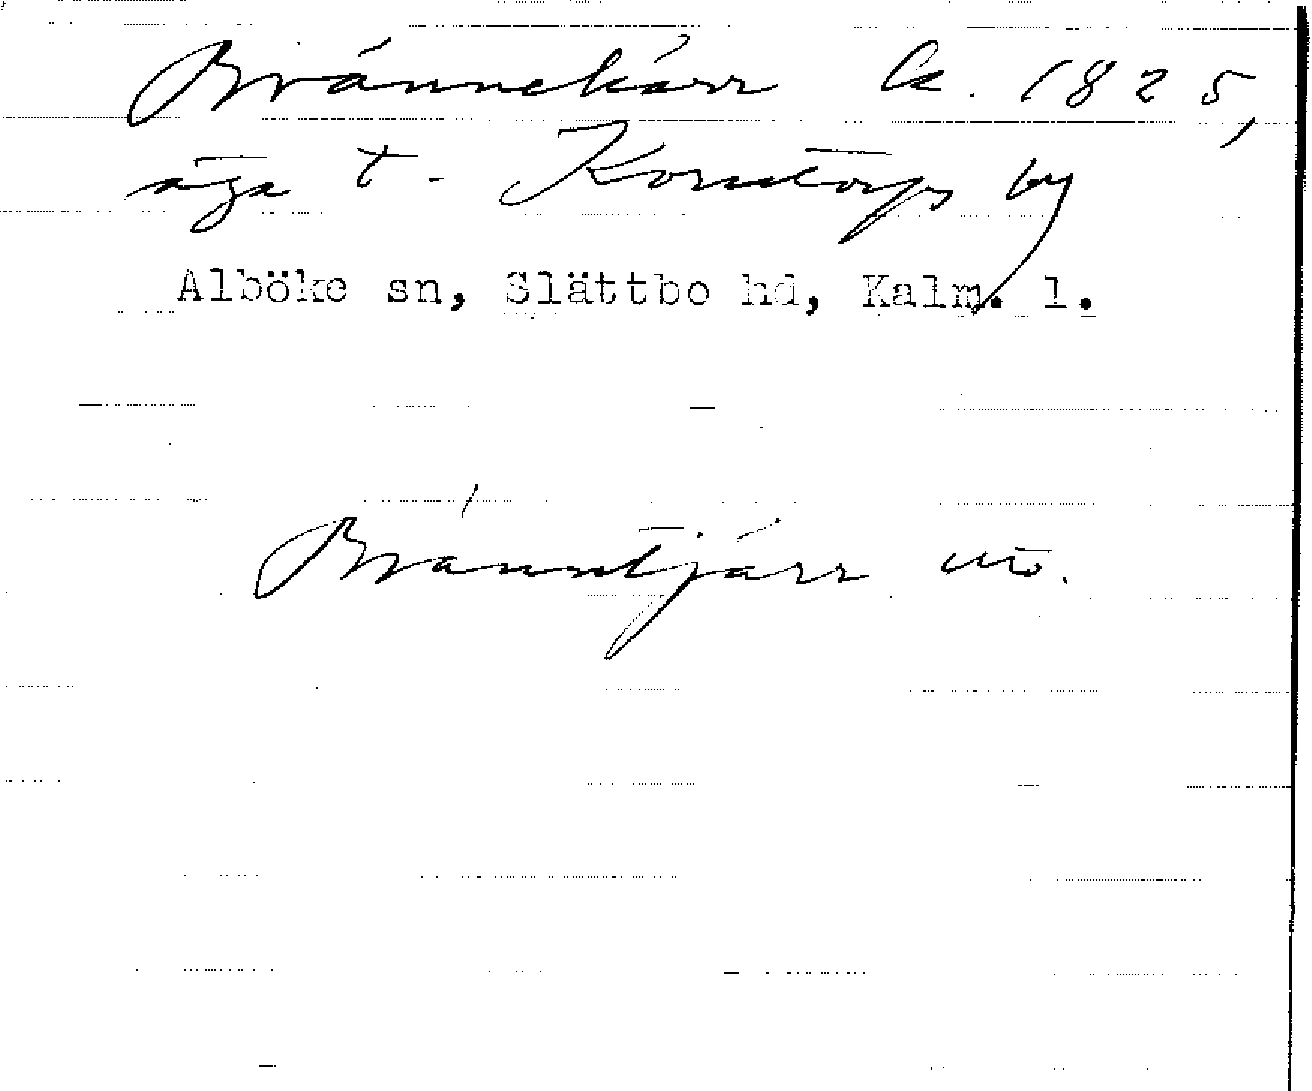 Brännekärr lc. 1825,
äga t. Korntorps by
Alböke sn, Slättbo hd, Kalm. l.
Bränntjärr utö.